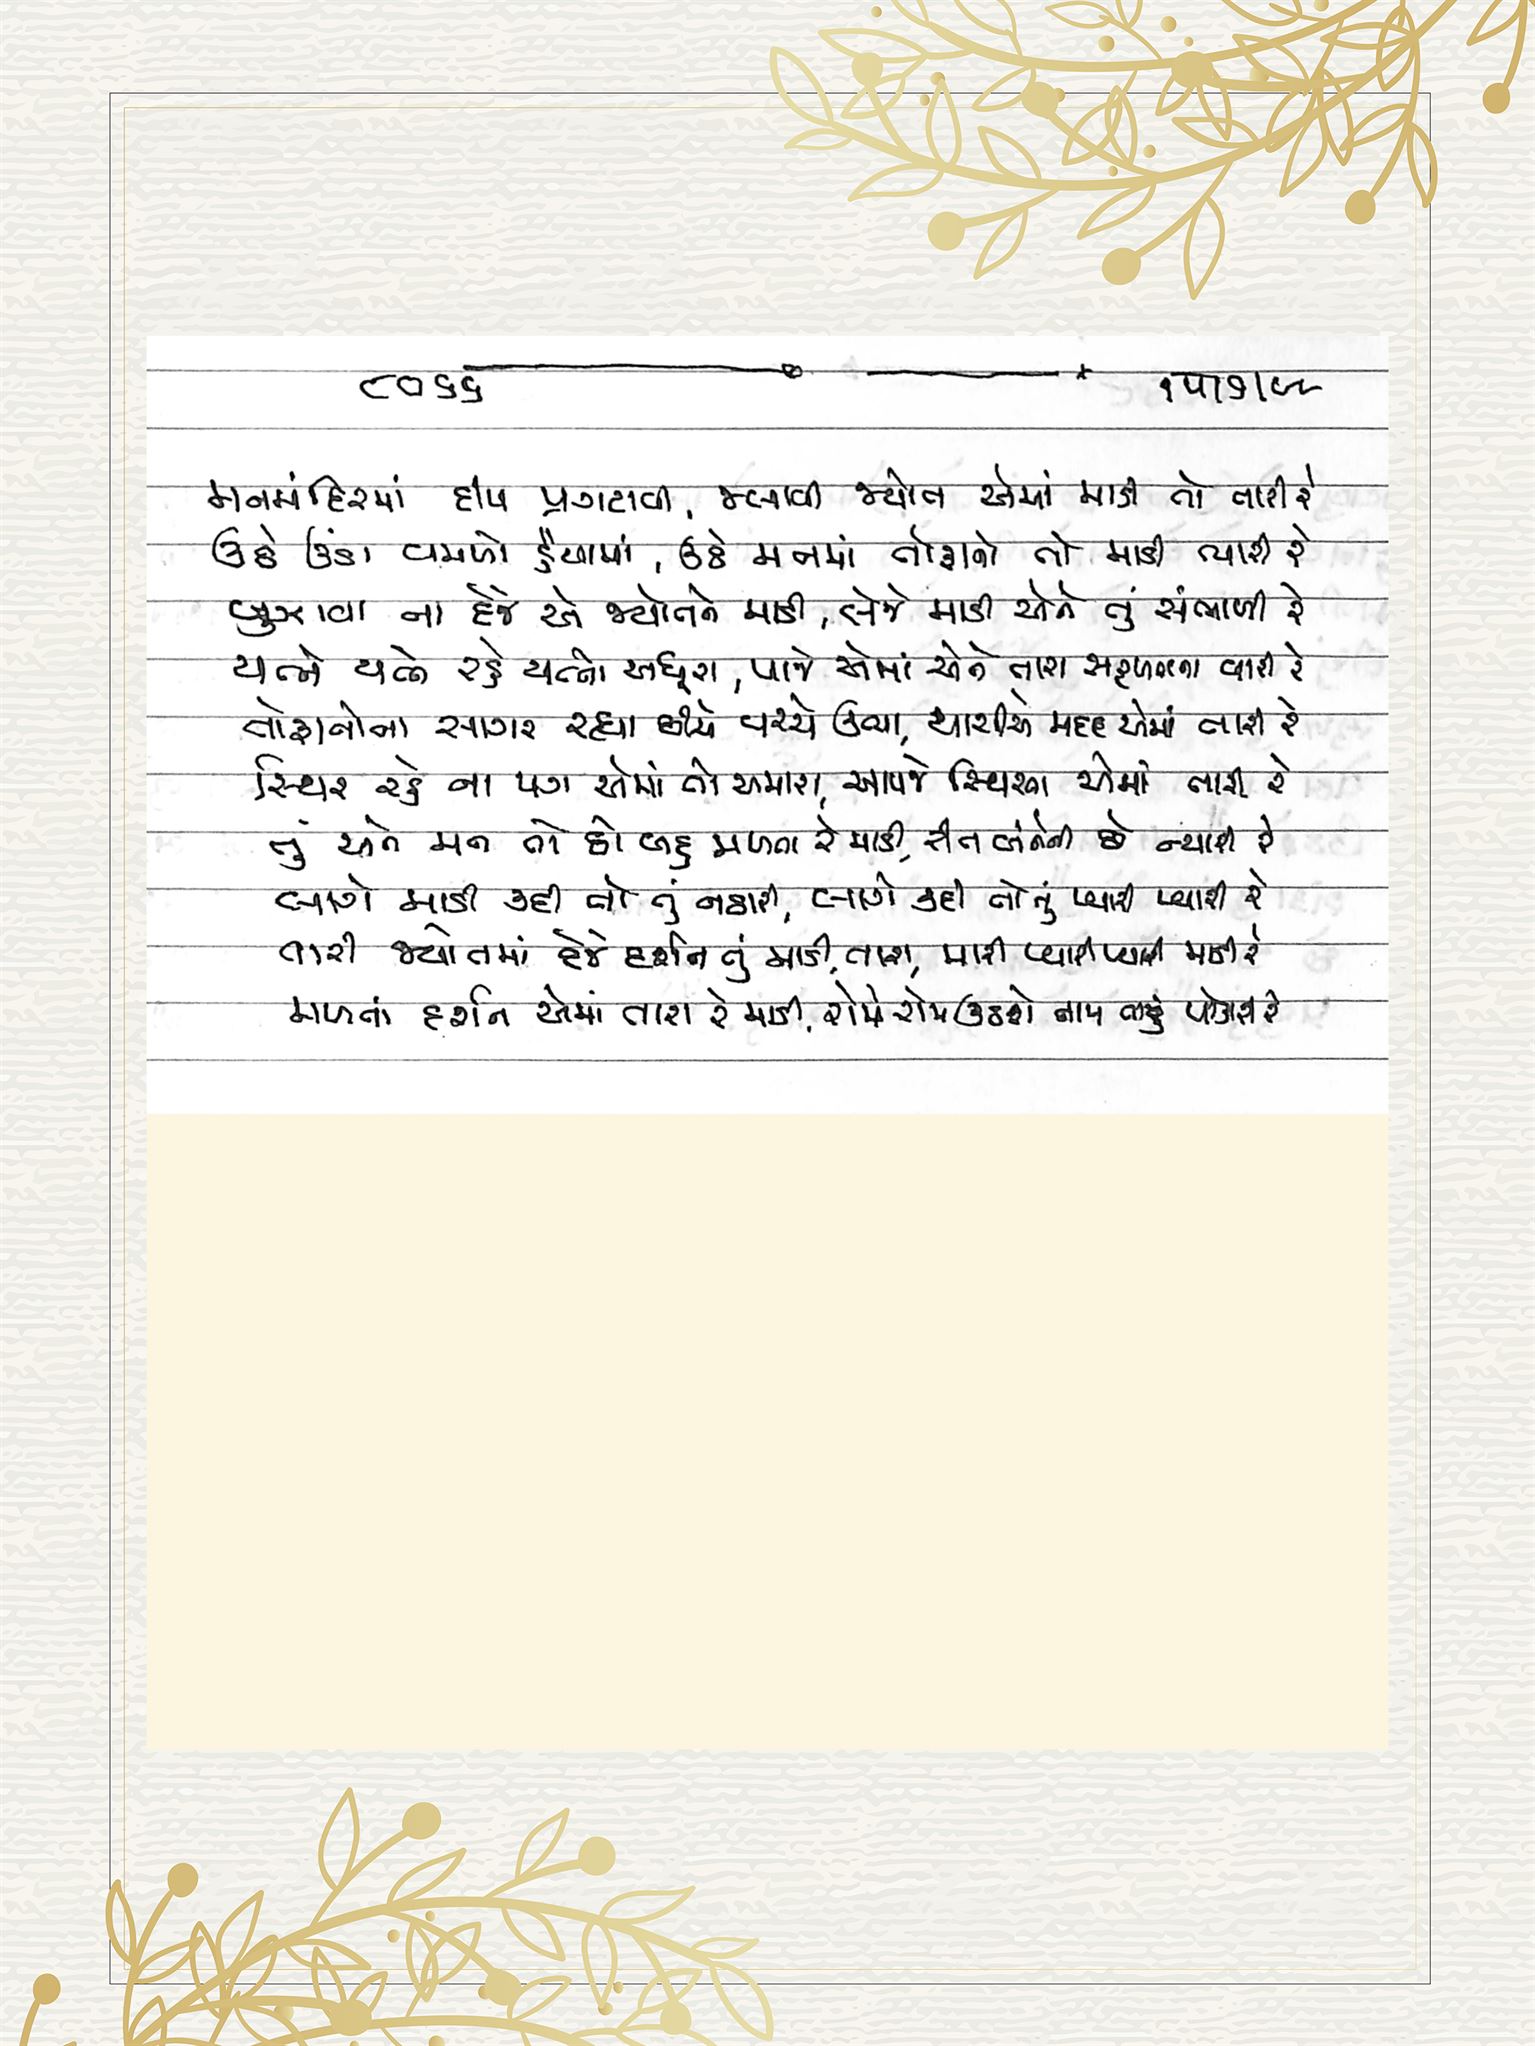 ૮૦૬૬ ૧૫।૭।૯૯
મનમંદિરમાં દીપ પ્રગટાવી, જલાવી જ્યોત એમાં માડી તો તારી રે
ઉઠે ઉંડા વમળો હૈયામાં, ઉઠે મનમાં તોફાનો તો માડી ત્યારે રે
બુઝાવા ના દેજે એ જ્યોતને માડી, લેજે માડી એને તું સંભાળી રે
યત્ને યત્ને રહે યત્નો અધૂરા, પાજે એમાં એને તારા સફળતાના વારી રે
તોફાનોના સાગર રહ્યા છીએ વચ્ચે ઉભા, યાચીએ મદદ એમાં તારી રે
સ્થિર રહે ના પગ એમાં તો અમારા, આપજે સ્થિરતા એમાં તારી રે
તું અને મન તો છો બહુ મળતા રે માડી, રીત બંનેની છે ન્યારી રે
લાગે માડી કદી તો તું નઠારી, લાગે કદી તો તું પ્યારી પ્યારી રે
તારી જ્યોતમાં દેજે દર્શન તું માડી, તારા, મારી પ્યારી પ્યારી માડી રે
મળતાં દર્શન એમાં તારા રે માડી, રોમે રોમ ઉઠશે નામ તારું પોકારી રે